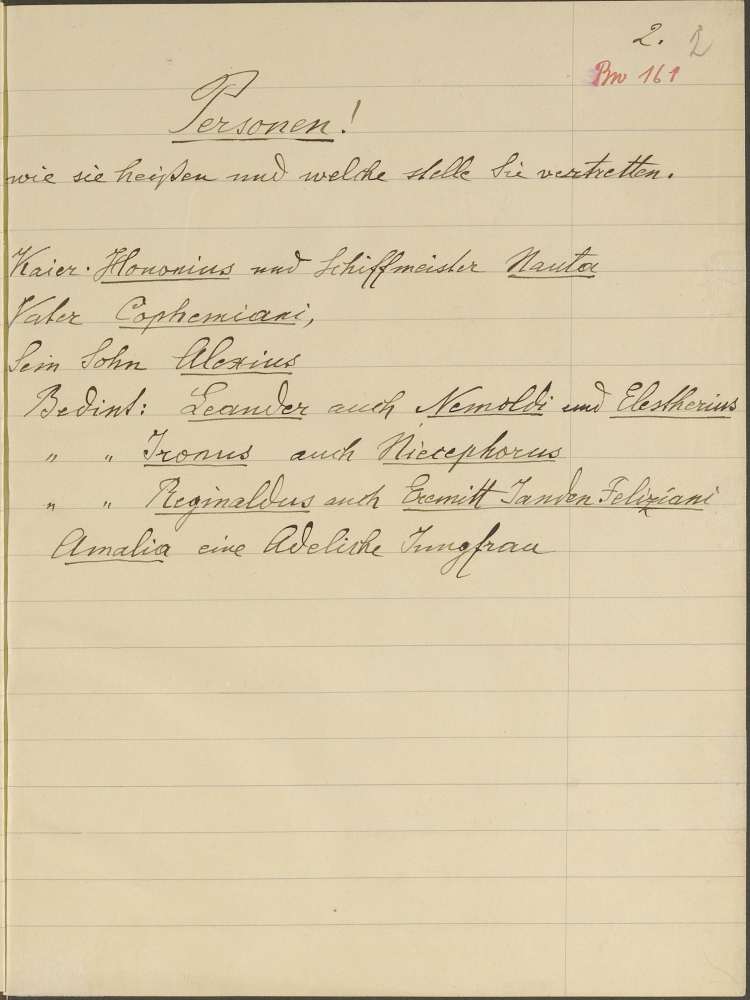 2. 2
Bw 161
Personen!
wie sie heißen und welche stelle Sie vertretten.
Kaier. Hononius und Schiffmeister Nauta
Vater Cophemiani,
Sein Sohn Alexius
Bedint: Leander auch Nemoldi und Elestherius
" " Tronus auch Niecephorus
" " Reginaldus auch Eremitt Janden Feliziani
Amalia eine Adelishe Jungfrau